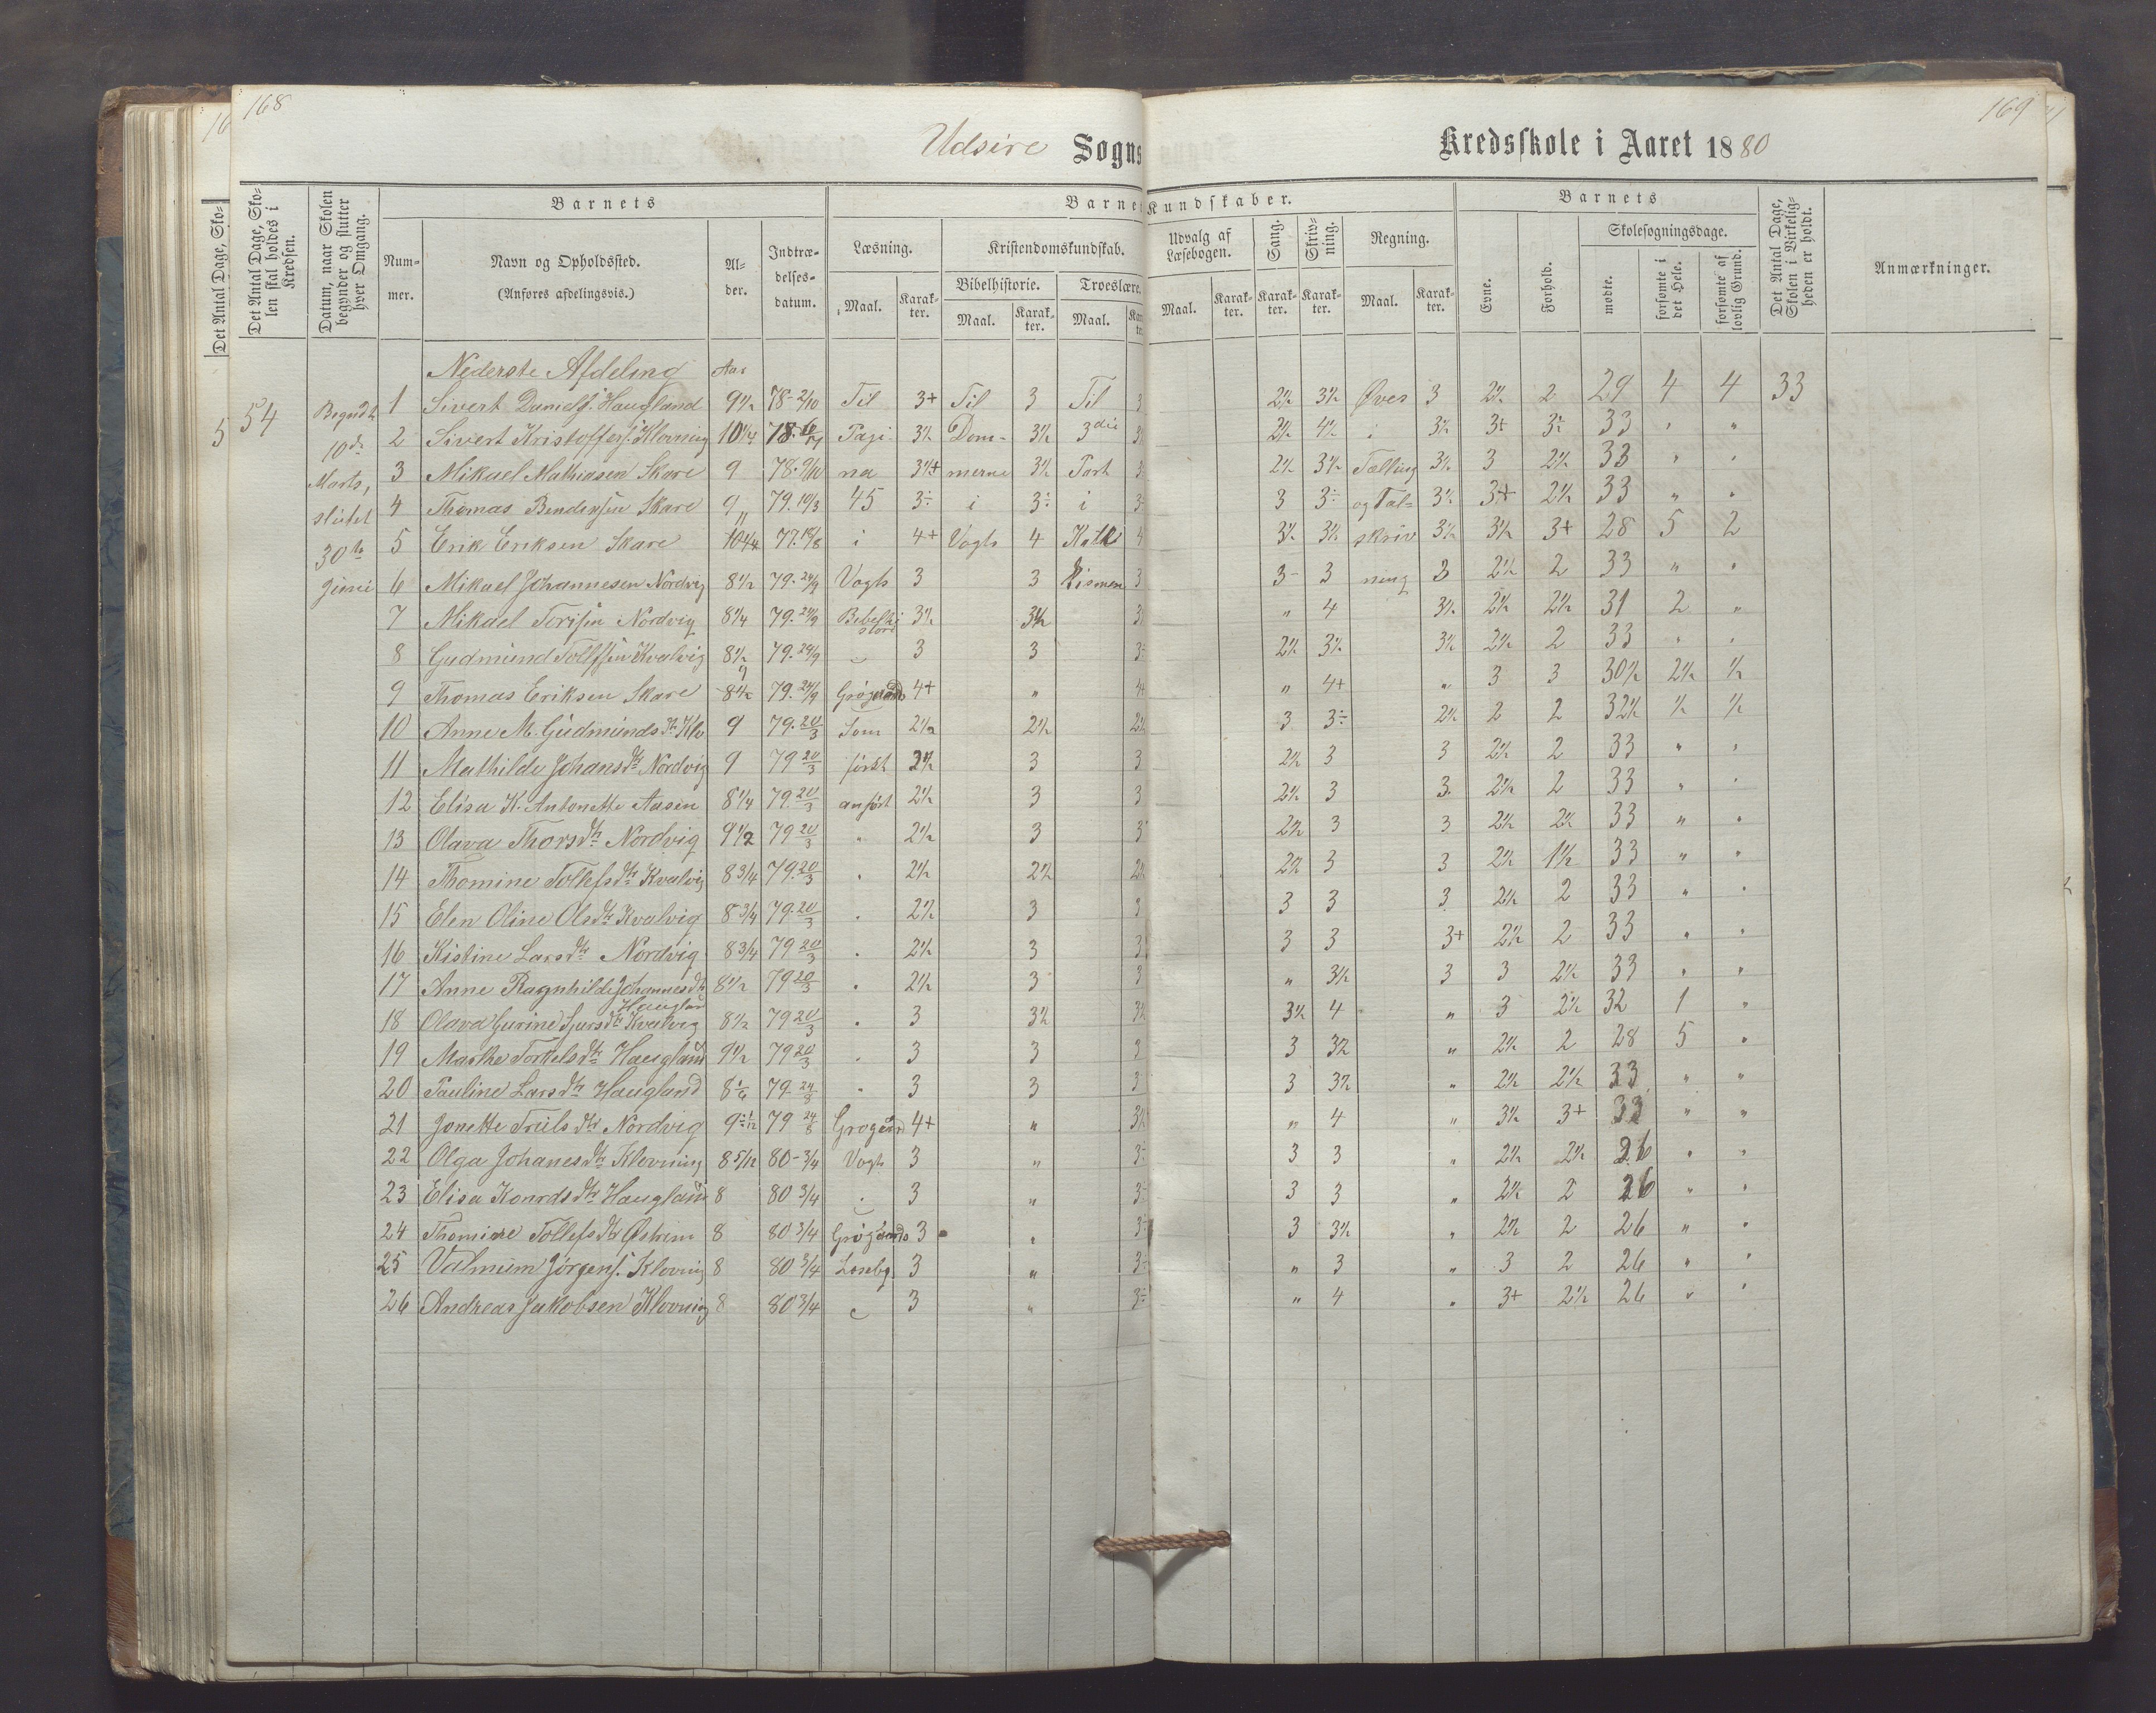 168
169
Udsire Sogns Kredsskole i Aaret 1880
Det Antal Dage, Skolen skal holdes i Kredsen.
Datum, naar Skolen begynder og slutter hver Omgang.
Barnets
Nummer.
Navn og Opholdssted.
(Anføres afdelingsvis.)
Alder.
Indtrædelsesdatum.
Barnets Kundskaber.
Læsning.
Maal. Karakter.
Kristendomskundskab.
Bibelhistorie. Troeslære.
Maal. Karakter. Maal.
Udvalg af Læsebogen.
Maal. Karakter.
Sang. Karakter.
Skrivning. Karakter.
Regning.
Maal. Karakter.
Barnets
Evne. Forhold.
Skolesøgningsdage.
mødte. forsømte i det Hele. forsømte af lovlig Grund.
Det Antal Dage, Skolen i Virkeligheden er holdt.
Anmærkninger.
54
Begyndt 10de Marts, sluttet 30te Juni
Nederste Afdeling Aar
1 Sivert Daniels. Haugland 9½ 78-2/10 Til 3+ Til 3 Til 3 2½ 3½ Øves 3 2½ 2 29 4 4 33
2 Sivert Kristoffers. Klovning 10¼ 78. Pagi- 3½ Dom- 3½ 3die 2½ 4½ i 3½ 3+ 3÷ 33 " "
3 Mikael Mathiasen Skare 9 78. 9/10 na 3½+ merne 3½ Part 2½ 3½ Tælling 3½ 3 2½ 33 " "
4 Thomas Bendersen Skare 9 79. 10/3 45 3÷ i 3÷ i 3 3÷ og Tal= 3½ 3+ 2½ 33 " "
5 Erik Eriksen Skare 10¼ 77. i 4+ Vogts 4 Kate 4 3½ 3½ skriv 3½ 3½ 3+ 28 5 2
6 Mikael Johannesen Nordvig 8½ 79. 24/9 Vogts 3 3 kismen 3 3- 3 ning 3 2½ 2 33 " "
7 Mikael Torisen Nordvig 8¼ 79. 24/9 Bibelhistorie 3½ 3½ " 4 3½ 2½ 2½ 31 2 "
8 Gudmund Tollefsen Kvalvig 8½ 79. 24/9 3 3 3÷ 2½ 3½ 3½ 2½ 2 33 " "
9 Thomas Eriksen Skare 8½ 9 79. 24/9 Grøgaards 4+ " " 4+ " 3 3 30½ 2½ ½
10 Anne M. Gudmunds dtr Klo 9 79. 20/3 Som 2½ 2½ 2½ 3 3÷ 2½ 2 2 32½ ½ ½
11 Mathilde Johans dtr Nordvig 9 79 20/3 først 2½ 3 3 2½ 3 3 2½ 2 33 " "
12 Elisa K. Antonette Aasen 8¼ 79. 20/3 anført 2½ 3 3 2½ 3 3 2½ 2 33 " "
13 Olava Thors dtr Nordvig 9½ 79 20/3 " 2½ 3 3 2½ 3 3 2½ 2½ 33 " "
14 Thomine Tollefs dtr Kvalvig 8¾ 79. 20/3 " 2½ 2½ 2½ 2½ 3 3 2½ 1½ 33 " "
15 Elen Oline Ols dtr Kvalvig 8¾ 79. 20/3 " 2½ 3 3 3 3 3 2½ 2 33 " "
16 Kistine Lars dtr Nordvig 8¾ 79 20/3 " 2½ 3 3 3 3 3+ 2½ 2 33 " "
17 Anne Ragnhilde Johannes dtr Haugland 8½ 79 20/3 " 2½ 3 3 " 3½ 3 3 2½ 33 " "
18 Olava Gurine Sjurs dtr Kvalvig 8½ 79 20/3 " 3 3½ 3½ 3½ 4 " 3 2½ 32 1 "
19 Marthe Torkels dtr Haugland 9½ 79 20/3 " 3 3 3 3 3½ " 2½ 2 28 5 "
20 Pauline Lars dtr Haugland 8 1/6 79. " 3 3 3 3 3½ " 2½ 2½ 33 " "
21 Jonette Truls dtr Nordvig 79 24/8 Grogård 4+ " 3½ " 4 " 3½ 3+ 33 " "
22 Olga Johanes dtr Klovning 8 5/12 80-3/4 Vogts 3 " 3÷ 3 3 " 2½ 2½ 26 " "
23 Elisa Konrds dtr Haugland 8 80 3/4 " 3 " 3÷ 3 3 " 2½ 2 26 " "
24 Thomine Tollefs dtr Østrem 8 80 3/4 Grøgaards 3 " 3÷ 3 3½ " 2½ 2 26 " "
25 Valmum Jørgens. Klovnig 8 80 3/4 Læsebg. 3 " 3÷ " 3 " 3 2 26 " "
26 Andreas Jakobsen Klovning 8 80 3/4 3 " 3÷ " 4 " 3+ 2½ 26 " "